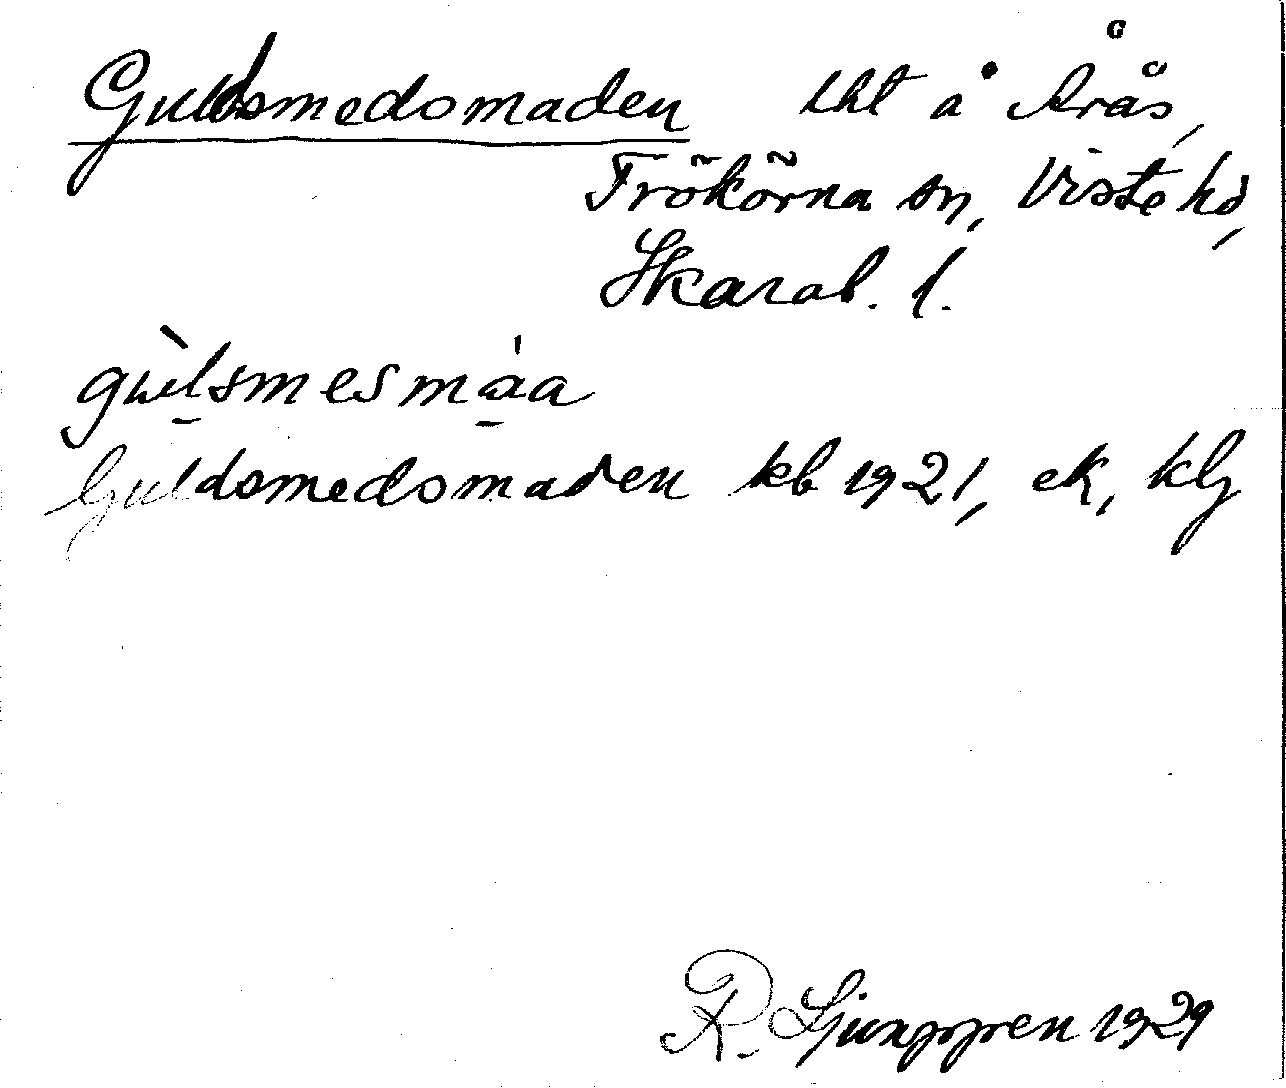 Guldsmedsmaden lht å Årås,
Frökörna sn, Viste hd,
Skarab. l.
gulsmesmáa
Guldsmedsmaden kb 1921, ek, klg
R. Ljunggren 1929